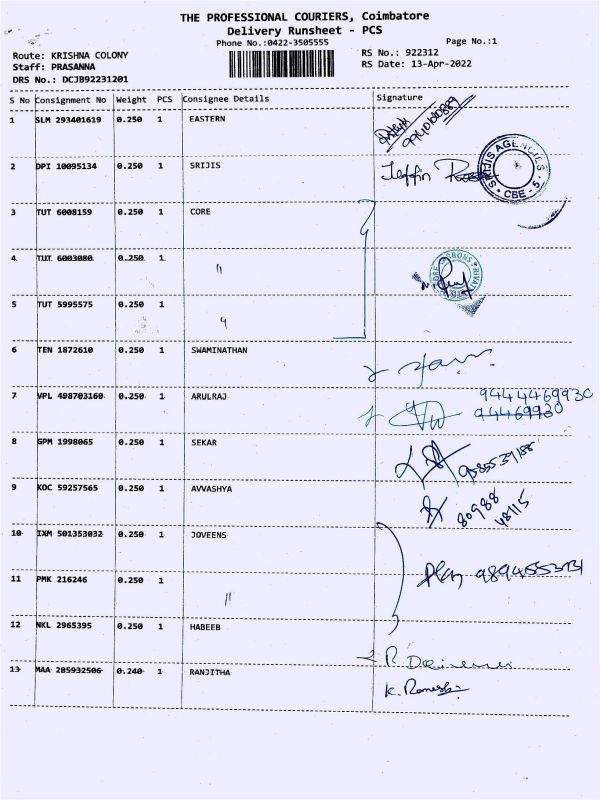 THE PROFESSIONAL COURIERS, Coimbatore
Delivery Runsheet - PCS
Phone No.:0422-3505555
Page No.:1
Route: KRISHNA COLONY
RS No.: 922312
Staff: PRASANNA
RS Date: 13-Apr-2022
DRS No.: DCJB92231201
S No Consignment No Weight PCS Consignee Details Signature
1 SLM 293401619 0.250 1 EASTERN
2 DPI 10095134 0.250 1 SRIJIS
SRIJIS AGENCIES
CBE - 5
3 TUT 6008159 0.250 1 CORE
4 TUT 6003080 0.250 1 "
5 TUT 5995575 0.250 1 "
6 TEN 1872610 0.250 1 SWAMINATHAN
7 VPL 498703160 0.250 1 ARULRAJ 9444469930
94469930
8 GPM 1998065 0.250 1 SEKAR
9 KOC 59257565 0.250 1 AVVASHYA 80988
48115
10 IXM 501353032 0.250 1 JOVEENS
11 PMK 216246 0.250 1 "
12 NKL 2965395 0.250 1 HABEEB
13 MAA 285932506 0.240 1 RANJITHA K. Ramesh